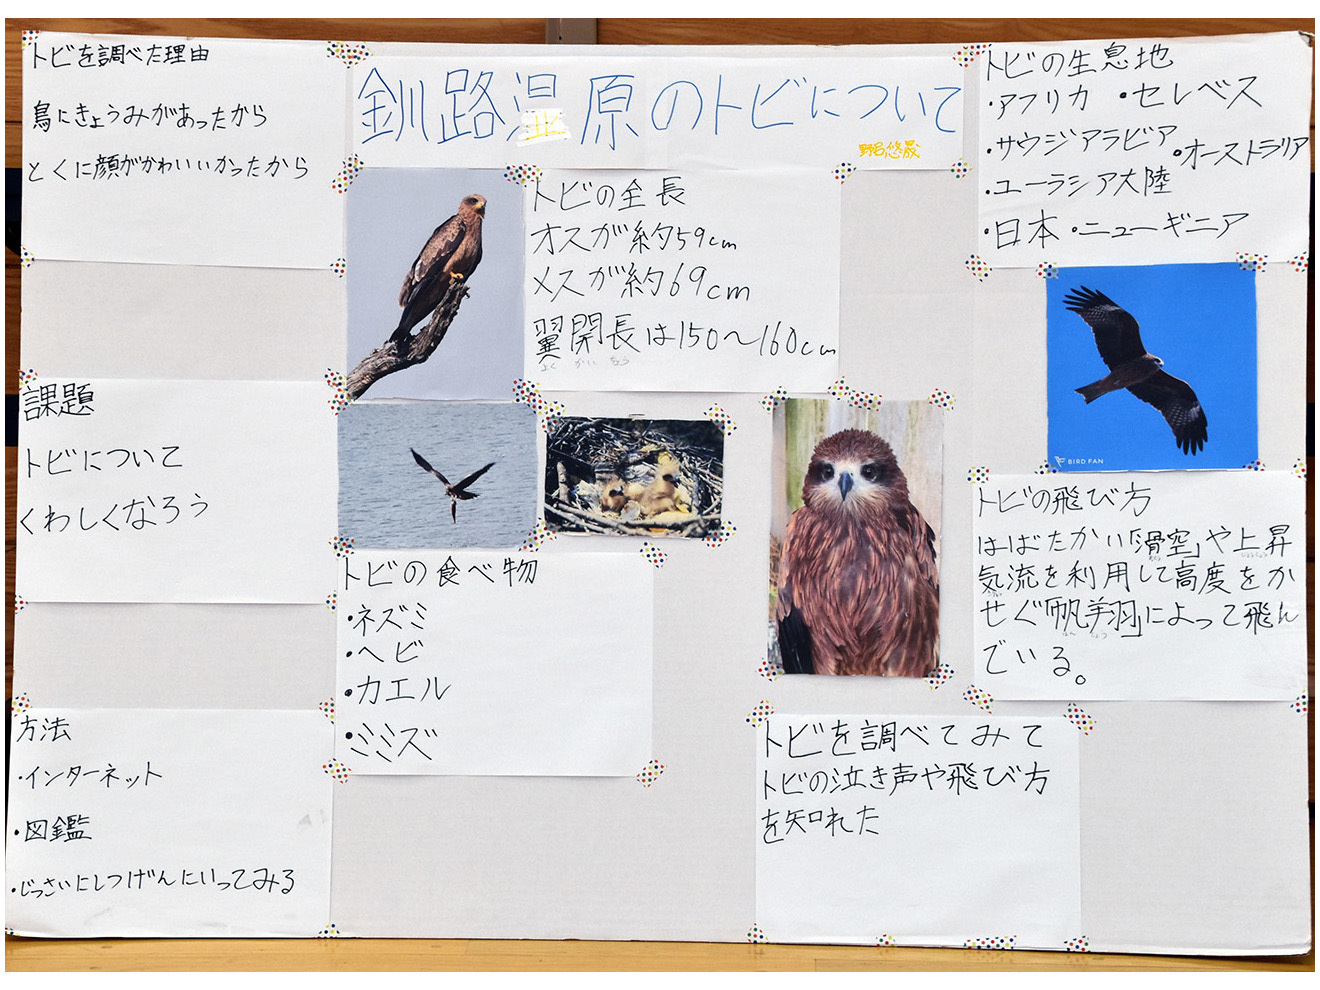 釧路湿原のトビについて
トビを調べた理由
鳥にきょうみがあったから
とくに顔がかわいいかったから
課題
トビについて
くわしくなろう
方法
・インターネット
・図鑑
・じっさいにしつげんにいってみる
トビの全長
オスが約59cm
メスが約69cm
翼開長は150〜160cm
よく かい ちょう
トビの食べ物
・ネズミ
・ヘビ
・カエル
・ミミズ
トビの生息地
・アフリカ ・セレベス
・サウジアラビア
・オーストラリア
・ユーラシア大陸
・日本・ニューギニア
BIRD FAN
トビの飛び方
はばたかい「滑空」や上昇
気流を利用して高度をか
せぐ「帆翔」によって飛ん
でいる。
トビを調べてみて
トビの泣き声や飛び方
を知れた